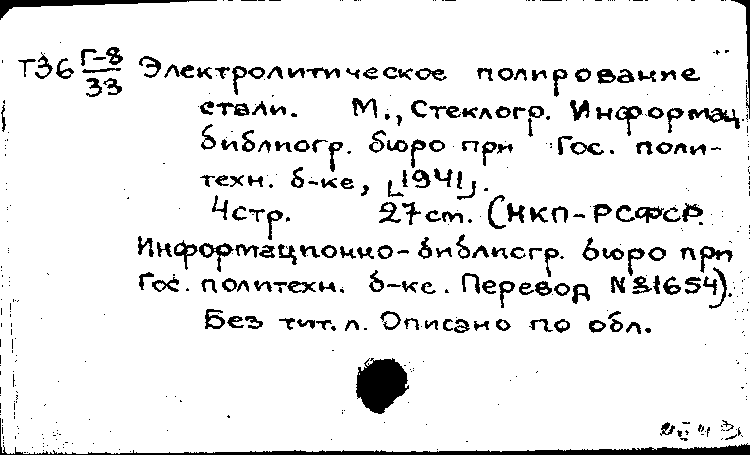 Т36 Г-8/33 Электролитическое полирование
стали. М., Стеклогр. Информац.
библиогр. бюро при Гос. поли-
техн. б-ке, [1941].
4стр. 27см. (НКП-РСФСР.
Информационно-библиогр. бюро при
Гос. политехн. б-ке. Перевод N31654).
Без тит. л. Описано по обл.